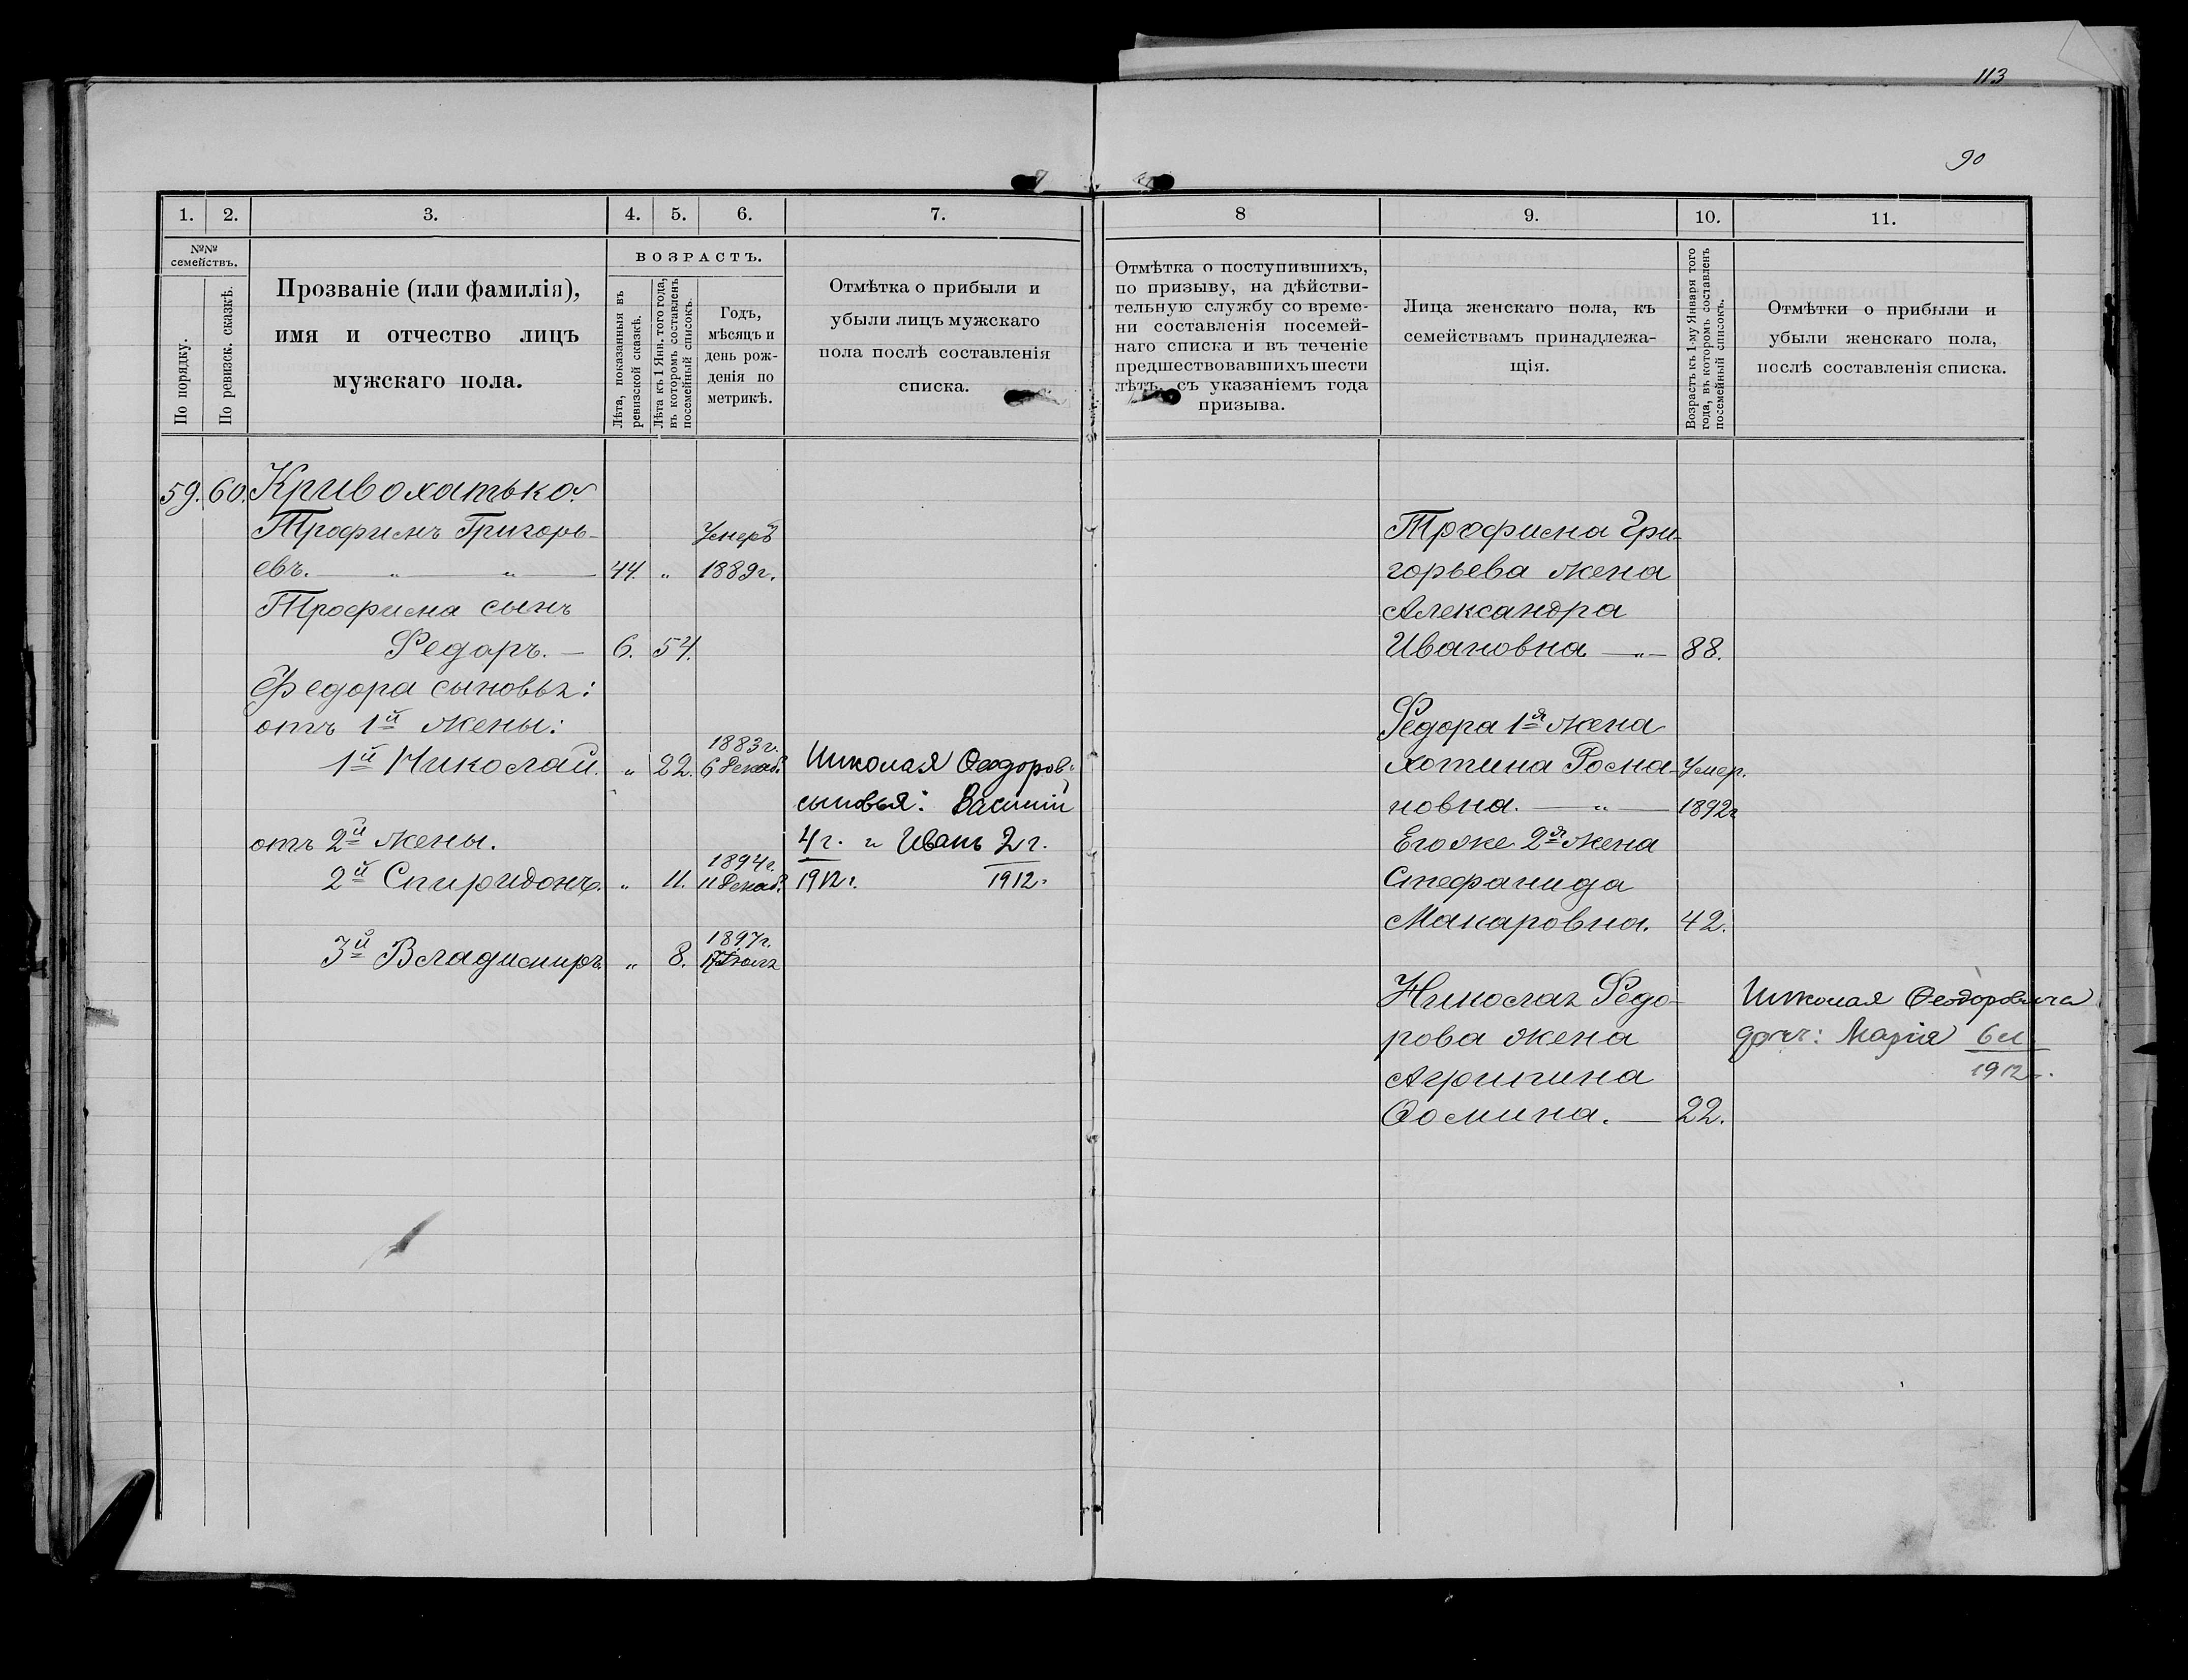 113
90
1. 2. 3. 4. 5. 6. 7.
№№ семействъ.
По порядку.
По ревизск. сказкѣ.
Прозваніе (или фамилія),
имя и отчество лицъ
мужскаго пола.
ВОЗРАСТЪ.
Лѣта, показанныя въ
ревизской сказкѣ.
Лѣта къ 1 Янв. того года,
въ которомъ составленъ
посемейный списокъ.
Годъ,
мѣсяцъ и
день рож-
денія по
метрикѣ.
Отмѣтка о прибыли и
убыли лицъ мужскаго
пола послѣ составленія
списка.
59. 60. Кривохатько.
Трофимъ Григорь- Умеръ
евъ. — „ — „ — 44. „ 1889г.
Трофима сынъ
Федоръ. — 6. 54.
Федора сыновья:
отъ 1й жены:
1883г.
1й Николай. „ 22. 6 Декаб. Николая Ѳеодоров.
сыновья: Василій
отъ 2й жены. 4г. и Иванъ 2г.
1894г.
2й Спиридонъ. „ 11. 11 Декаб. 1912г. 1912г.
1897г.
3й Владимиръ. „ 8. 17 Іюля
8 9. 10. 11.
Отмѣтка о поступившихъ,
по призыву, на дѣйстви-
тельную службу со време-
ни составленія посемей-
наго списка и въ теченіе
предшествовавшихъ шести
лѣтъ, съ указаніемъ года
призыва.
Лица женскаго пола, къ
семействамъ принадлежа-
щія.
Возрастъ къ 1-му Января того
года, въ которомъ составленъ
посемейный списокъ.
Отмѣтки о прибыли и
убыли женскаго пола,
послѣ составленія списка.
Трофима Гри-
горьева жена
Александра
Ивановна — „ — 88.
Федора 1я жена
Хотина Рома- Умер.
новна. — „ — 1892г
Его же 2я жена
Стефанида
Макаровна. 42.
Николая Федо- Николая Ѳеодоровича
рова жена дочь: Марія 6 м.
Агрипина 1912г.
Ѳомина. — 22.